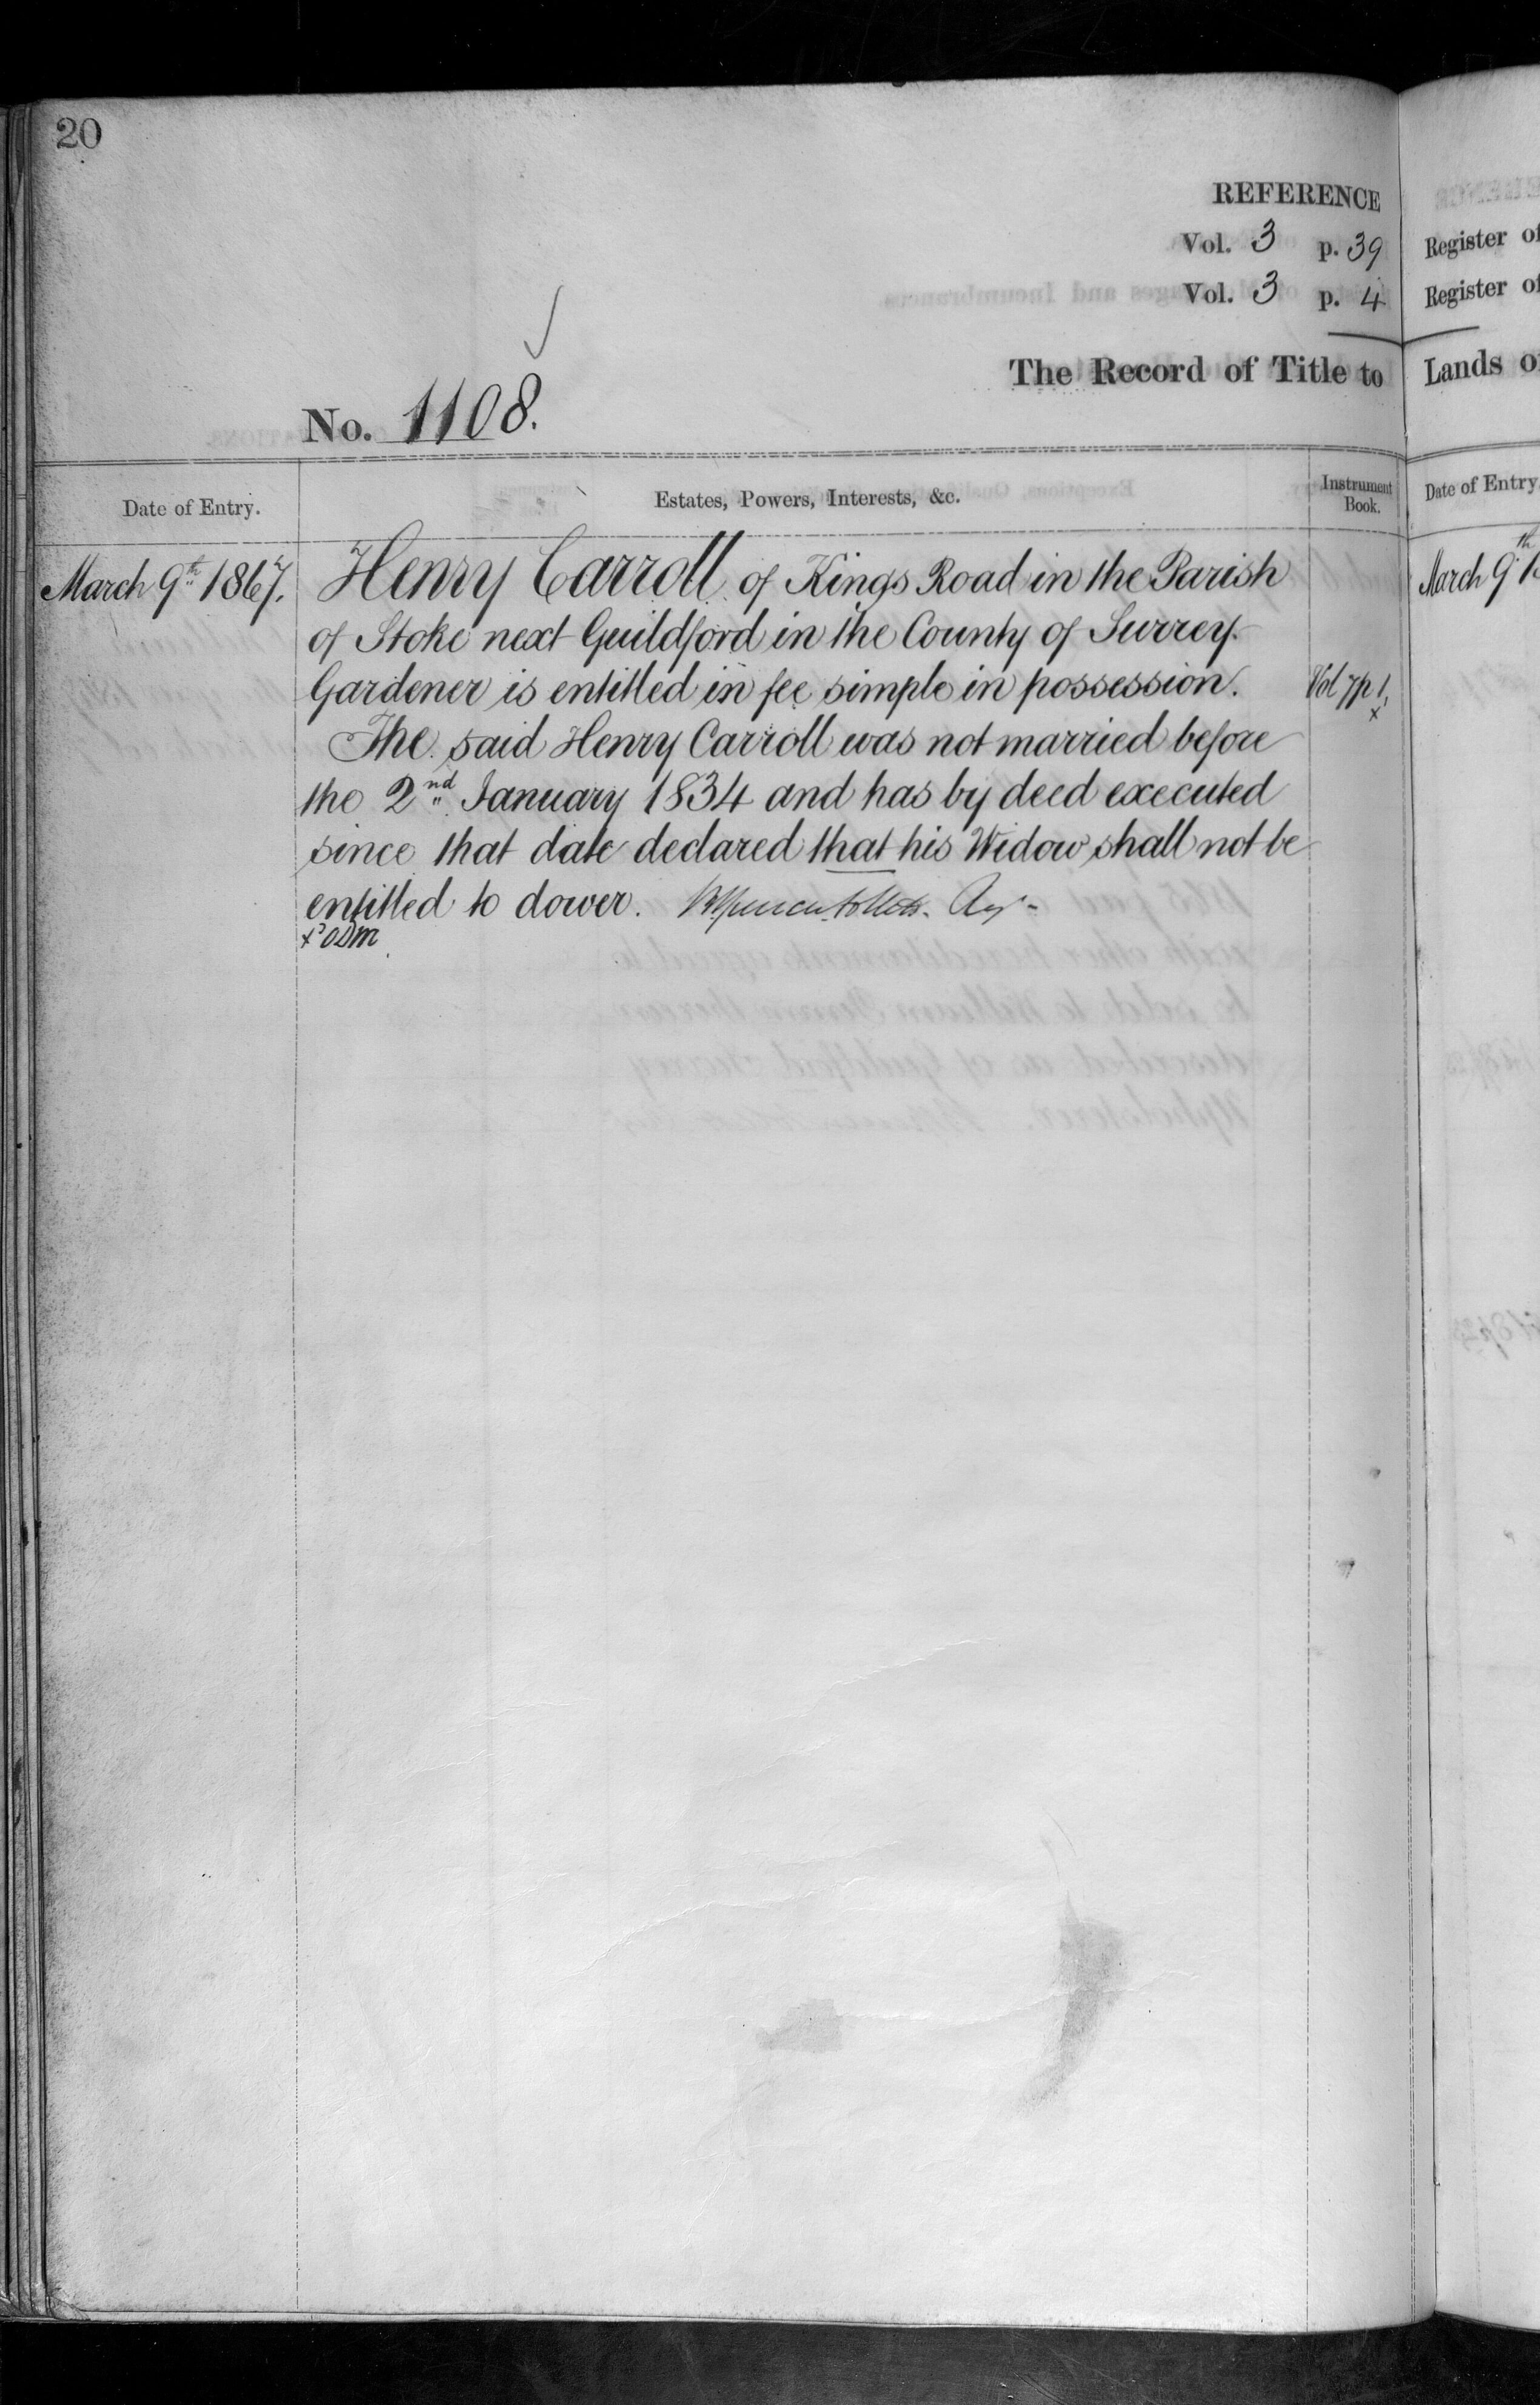 20
REFERENCE
Vol. 3 p. 39
Vol. 3 p. 4
The Record of Title to
No. 1108.
Date of Entry.
Estates, Powers, Interests, &c.
Instrument
Book.
March 9th 1867.
Henry Carroll of Kings Road in the Parish
of Stoke next Guildford in the County of Surrey
Gardener is entitled in fee simple in possession.
Vol 7 p 1,
x
The said Henry Carroll was not married before
the 2nd January 1834 and has by deed executed
since that date declared that his Widow shall not be
entitled to dower.
Register of
Register of
Lands o
Date of Entry
March 9th